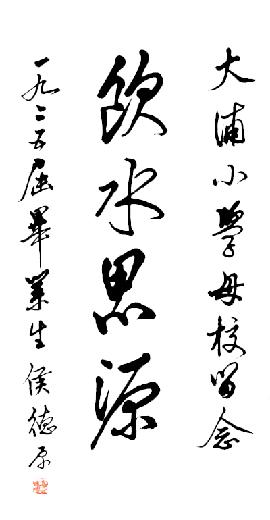 大浦小學母校留念
飲水思源
一九二五屆畢業生侯德原